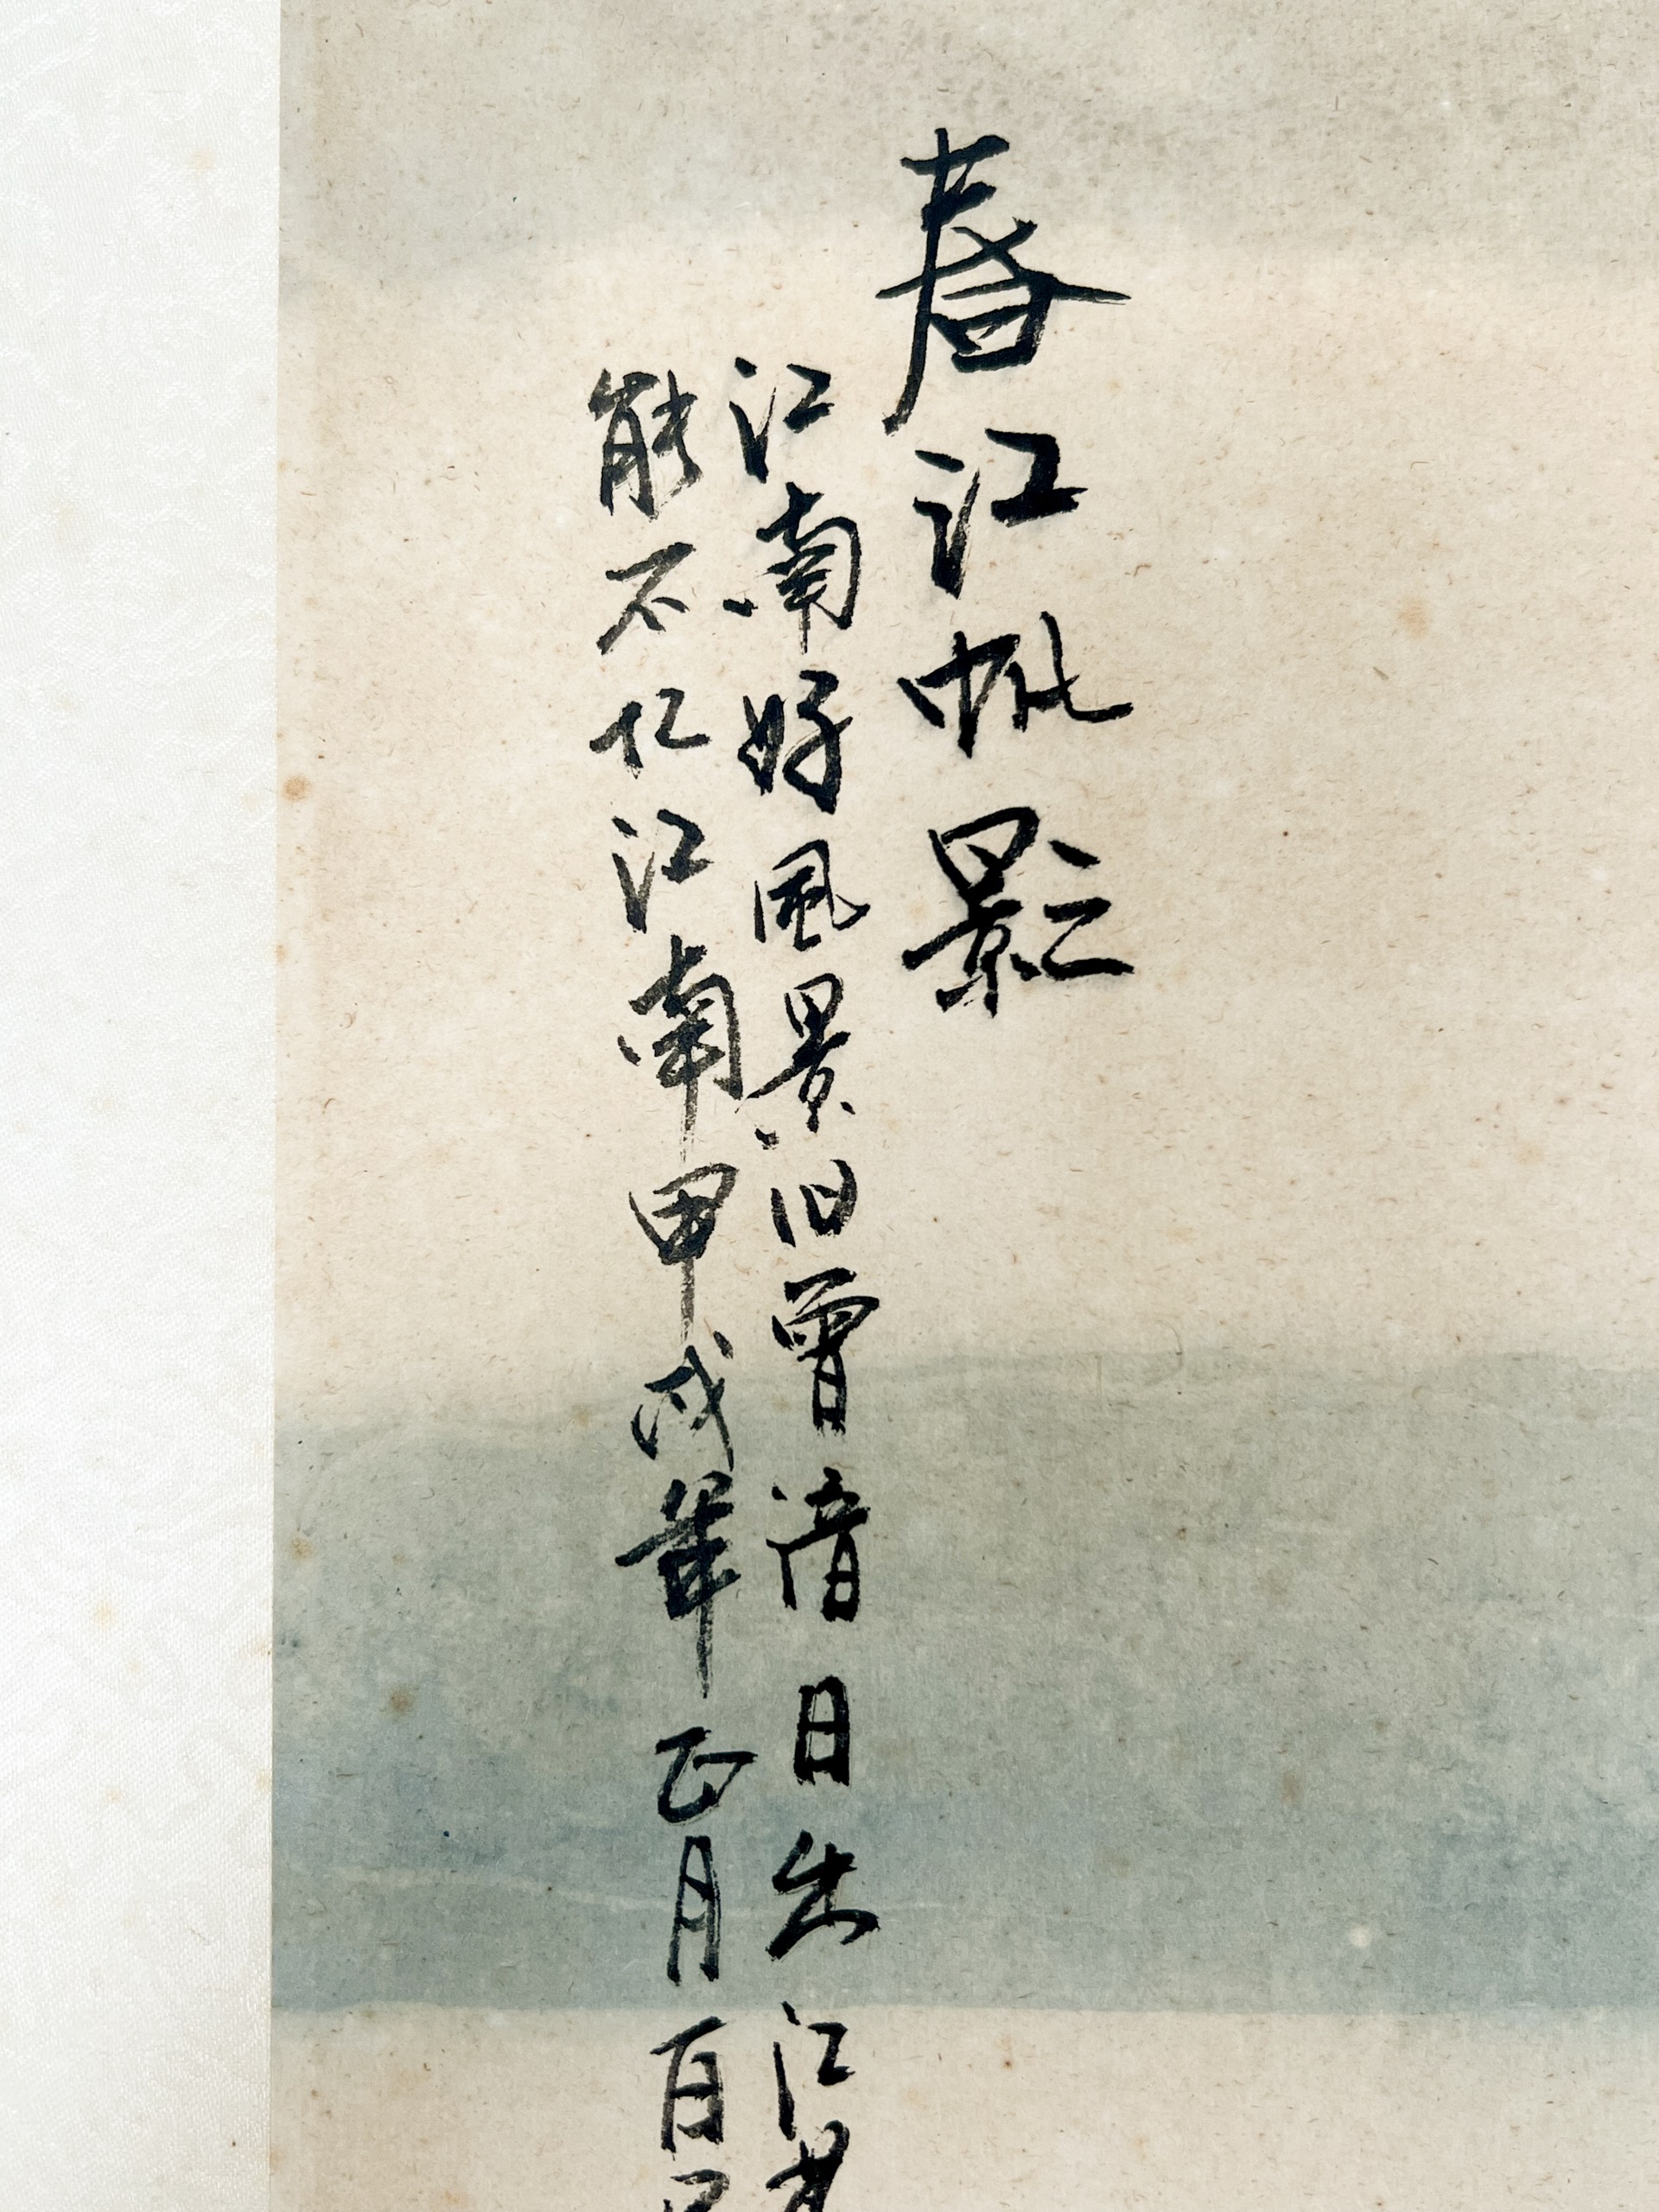 春江帆影
江南好風景旧曾谙日出江
能不忆江南甲戌年正月百